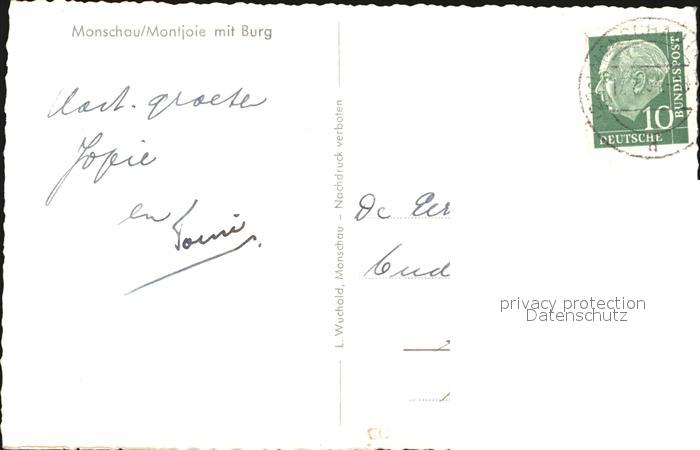 Monschau/Montjoie mit Burg
Hart. groeten
Jopie
en Tonni.
L. Wuchold, Monschau – Nachdruck verboten
De Eer
Oud
10
DEUTSCHE
BUNDESPOST
privacy protection
Datenschutz